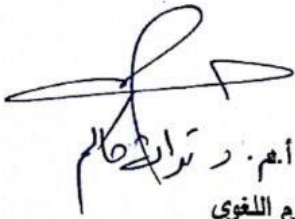 أ.م. د تراث حاكم
م اللغوي